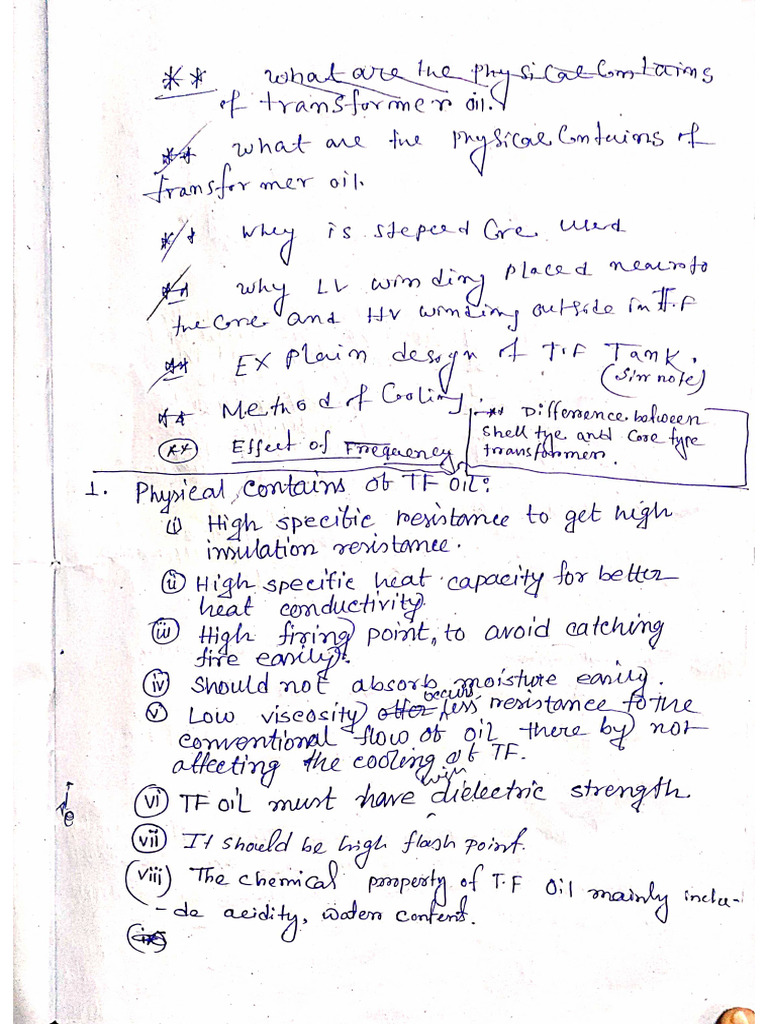 ** what are the physical Contains
of transformer oil.
** what are the physical Contains of
transformer oil.
** whey is stepeed Core used
** why LV winding placed nearinto
the Core and HV winding outside in T.F
** EXplain design of T.F Tank.
(Sir note)
** Method of Cooling.
** Difference between
shell tye and Core type
transformer.
** Effect of Frequency
1. Physical contains of TF OIL:
(i) High specific resistance to get high
insulation resistance.
(ii) High specific heat capacity for better
heat conductivity
(iii) High firing point, to avoid catching
fire easily.
(iv) Should not absorb moisture easily.
(v) Low viscosity occurs less resistance to the
conventional flow of oil there by not
affecting the cooling of TF.
(vi) TF OIL must have high dielectric strength.
(vii) It should be high flash point.
(viii) The chemical property of T.F Oil mainly inclu-
-de acidity, water content.